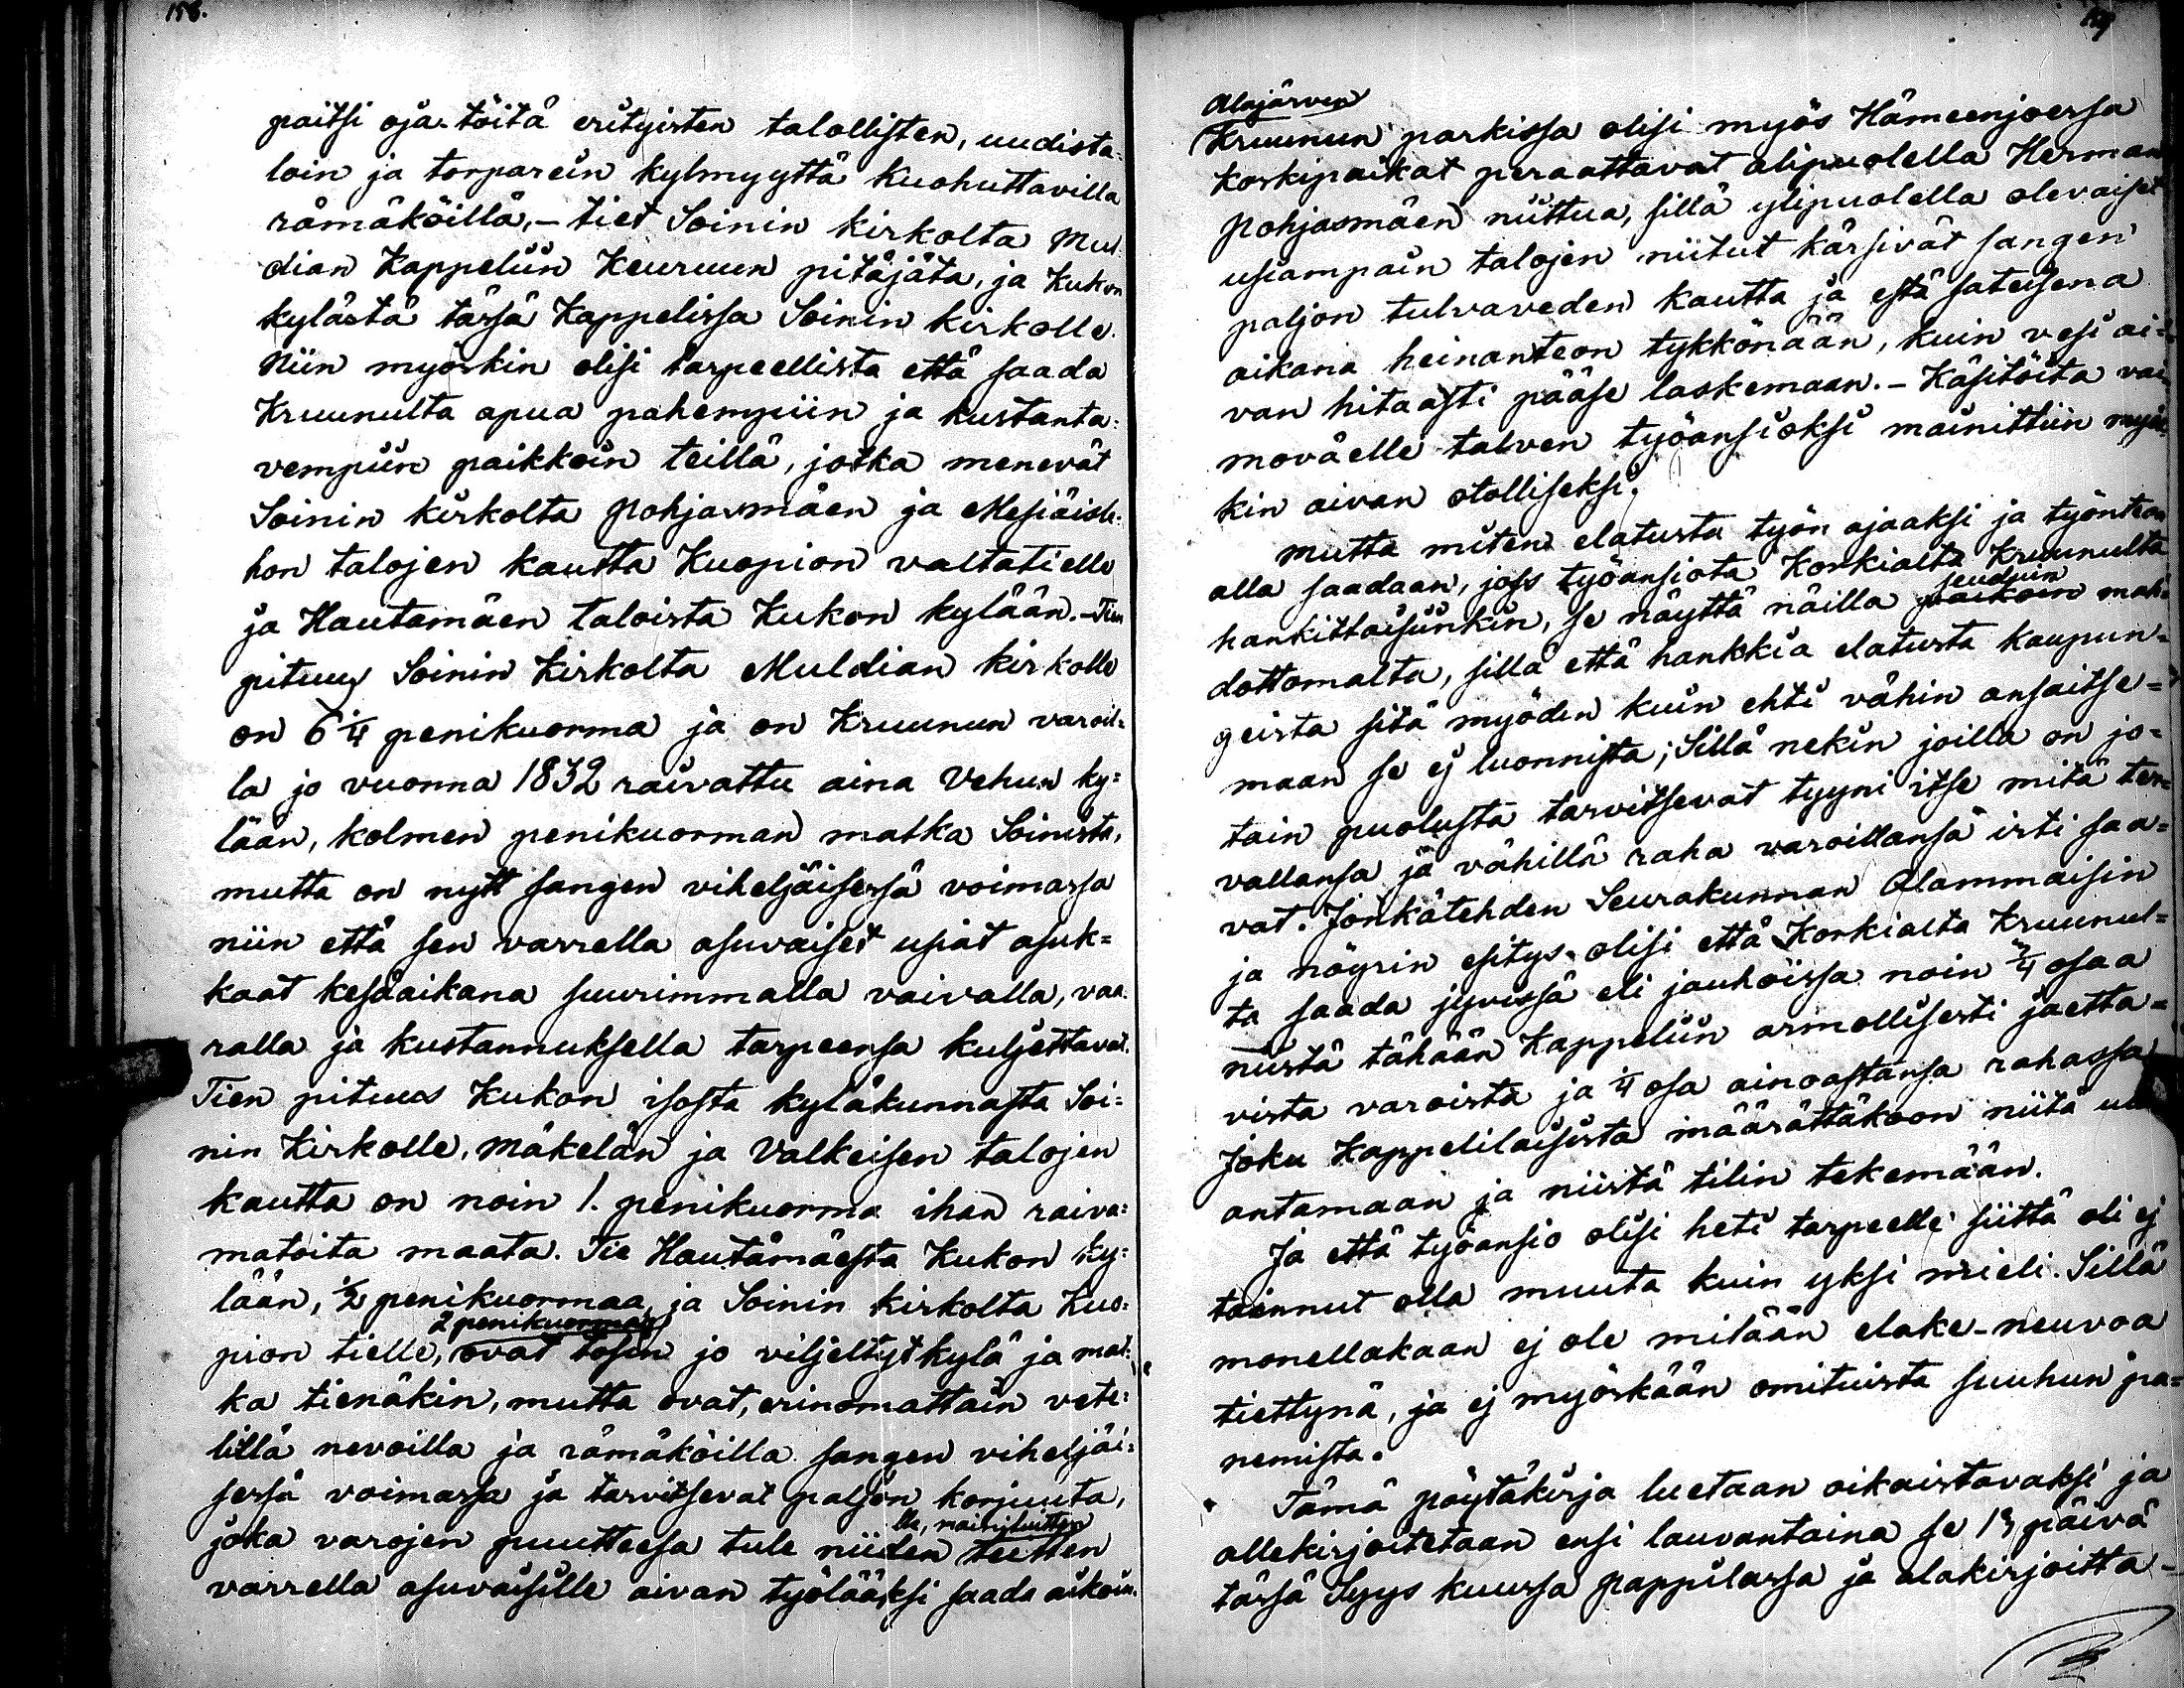 156.
paitsi oja-töitä erityisten talollisten, uudista=
loin ja torparein kylmyyttä kuohuttavilla
rämäköillä, – tiet Soinin kirkolta Mul=
dian Kappeliin Keuruun pitäjätä, ja Kukon
kylästä tässä Kappelissa Soinin kirkolle.
Niin myöskin olisi tarpeellista että saada
Kruunulta apua pahempiin ja kustanta=
vempiin paikkoin teillä, jotka menevät
Soinin kirkolta Pohjasmäen ja Mesiäisle=
hon talojen kautta Kuopion valtatielle
ja Hautamäen taloista Kukon kylään. – Tien
pituus Soinin Kirkolta Muldian kirkolle
on 6 1/4 penikuorma ja on Kruunun varoil=
la jo vuonna 1832 raivattu aina Vehun ky=
lään, kolmen penikuorman matka Soinista,
mutta on nytt sangen viheljäisessä voimassa
niin että sen varrella asuvaiset usiat asuk=
kaat kesäaikana suurimmalla vaivalla, vaa=
ralla ja kustannuksella tarpeensa kuljettavat.
Tien pituus Kukon isosta kyläkunnasta Soi=
nin Kirkolle, Mäkelän ja Valkeisen talojen
kautta on noin 1. penikuorma ihan raiva=
matoita maata. Tie Hautämäestä Kukon ky=
lään, 1/2 penikuormaa, ja Soinin kirkolta Kuo=
2 penikuormaa
pion tielle, ovat tosin jo viljeltyt kylä ja mat=
ka tienäkin, mutta ovat, erinomattain vete=
lillä nevoilla ja rämäköillä sangen viheljäi=
sessä voimassa ja tarvitsevat paljon korjuuta,
joka varojen puutteesa tule niiden teitten
varrella asuvaisille aivan työlääksi saada aikoin.
Alajärven
Kruunun parkissa olisi myös Hämeenjoessa
koskipaikat perattavat alipuolella Herman
Pohjasmäen niittua, sillä ylipuolella olevaiset
usiampain talojen niitut kärsivät sangen
paljon tulvaveden kautta ja että sateisena
aikana heinanteon tykkönään, kuin vesi ai=
van hitaasti pääse laskemaan. – Käsitöitä vai
moväelle talven työansioksi mainittiin myös
kin aivan otolliseksi.
Mutta miten elatusta työn ajaaksi ja työnteon
alla saadaan, joss työansiota Korkialta Kruunulta
seuduin
hankittaisiinkin, se näyttä näillä paikoin mah=
dottomalta, sillä että hankkia elatusta kaupun=
geista sitä myöden kuin ehti vähin ansaitse=
maan se ej luonnista; Sillä nekin joilla on jo=
tain puolusta tarvitsevat tyyni itse mitä ter=
vallansa ja vähillä raha varoillansa irti saa=
vat. Jonkatehden Seurakunnan Alammaisin
ja nöyrin esitys olisi että Korkialta Kruunul=
ta saada jyvissä eli jauhoissa noin 3/4 osaa
niistä tähään Kappeliin armollisesti jaetta=
vista varoista ja 1/4 osa ainoastansa rahassa
Joku Kappelilaisista määrättäkoon niitä
antamaan ja niistä tilin tekemään.
Ja että työansio olisi heti tarpeelle siittä oli ej
tainnut olla muuta kuin yksi mieli. Sillä
monellakaan ej ole mitään elake-neuvoa
tiettynä, ja ej myöskään omituista suuhun pa=
nemista.
Tämä pöytäkirja luetaan oikaistavaksi ja
allekirjoitetaan ensi lauvantaina se 13 päivä
tässä Syys kuussa pappilassa ja alakirjoitta-